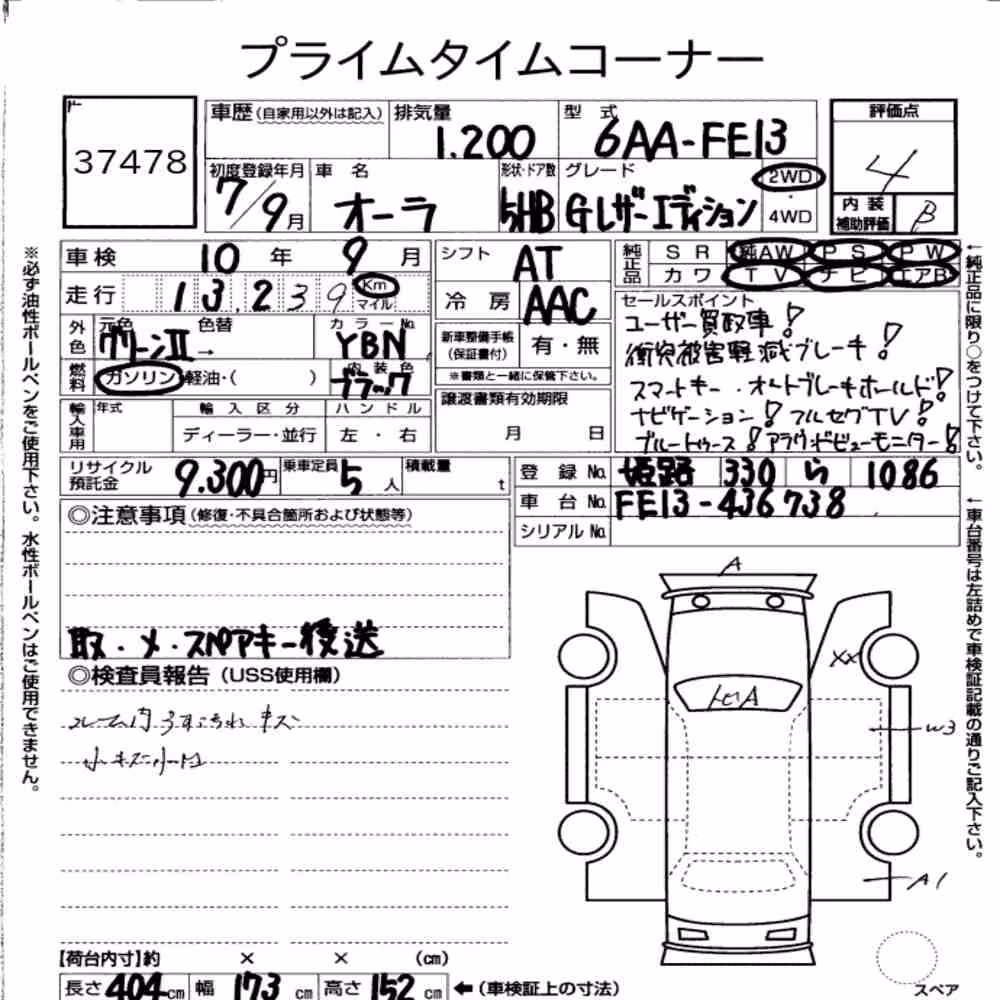 プライムタイムコーナー
37478
車歴 (自家用以外は記入) 排気量 型式 評価点
1.200 6AA-FE13 4
初度登録年月 車名 形状・ドア数 グレード 2WD
7/9月 オーラ 5HB Gレザーエディション ・4WD
内装補助評価 B
車検 10年 9月 シフト AT
純正品 SR 純AW PS PW
カワ TV ナビ エアB
走行 13,239 Km マイル 冷房 AAC
セールスポイント
ユーザー買取車!
衝突被害軽減ブレーキ!
スマートキー・オートブレーキホールド!
ナビゲーション!フルセグTV!
ブルートゥース!アラウンドビューモニター!
外色 元色 色替 カラーNo.
グリーンII→ YBN
新車整備手帳(保証書付) 有・無
※書類と一緒に保管下さい。
燃料 ガソリン 軽油・( ) 内装色 ブラック
輸入車用 年式 輸入区分 ハンドル
ディーラー・並行 左・右
譲渡書類有効期限
月 日
リサイクル預託金 9.300円 乗車定員 5人 積載量 t
登録No. 姫路 330 ら 1086
車台No. FE13-436738
シリアルNo.
◎注意事項 (修復・不具合箇所および状態等)
取・メ・スペアキー後送
◎検査員報告 (USS使用欄)
小キズ小凹
A
XX
A
W3
A1
スペア
【荷台内寸】約 × × (cm)
長さ 404cm 幅 173cm 高さ 152cm ←(車検証上の寸法)
※必ず油性ボールペンをご使用下さい。水性ボールペンはご使用できません。
←純正品に限り○をつけて下さい。
←車台番号は左詰めで車検証記載の通りご記入下さい。